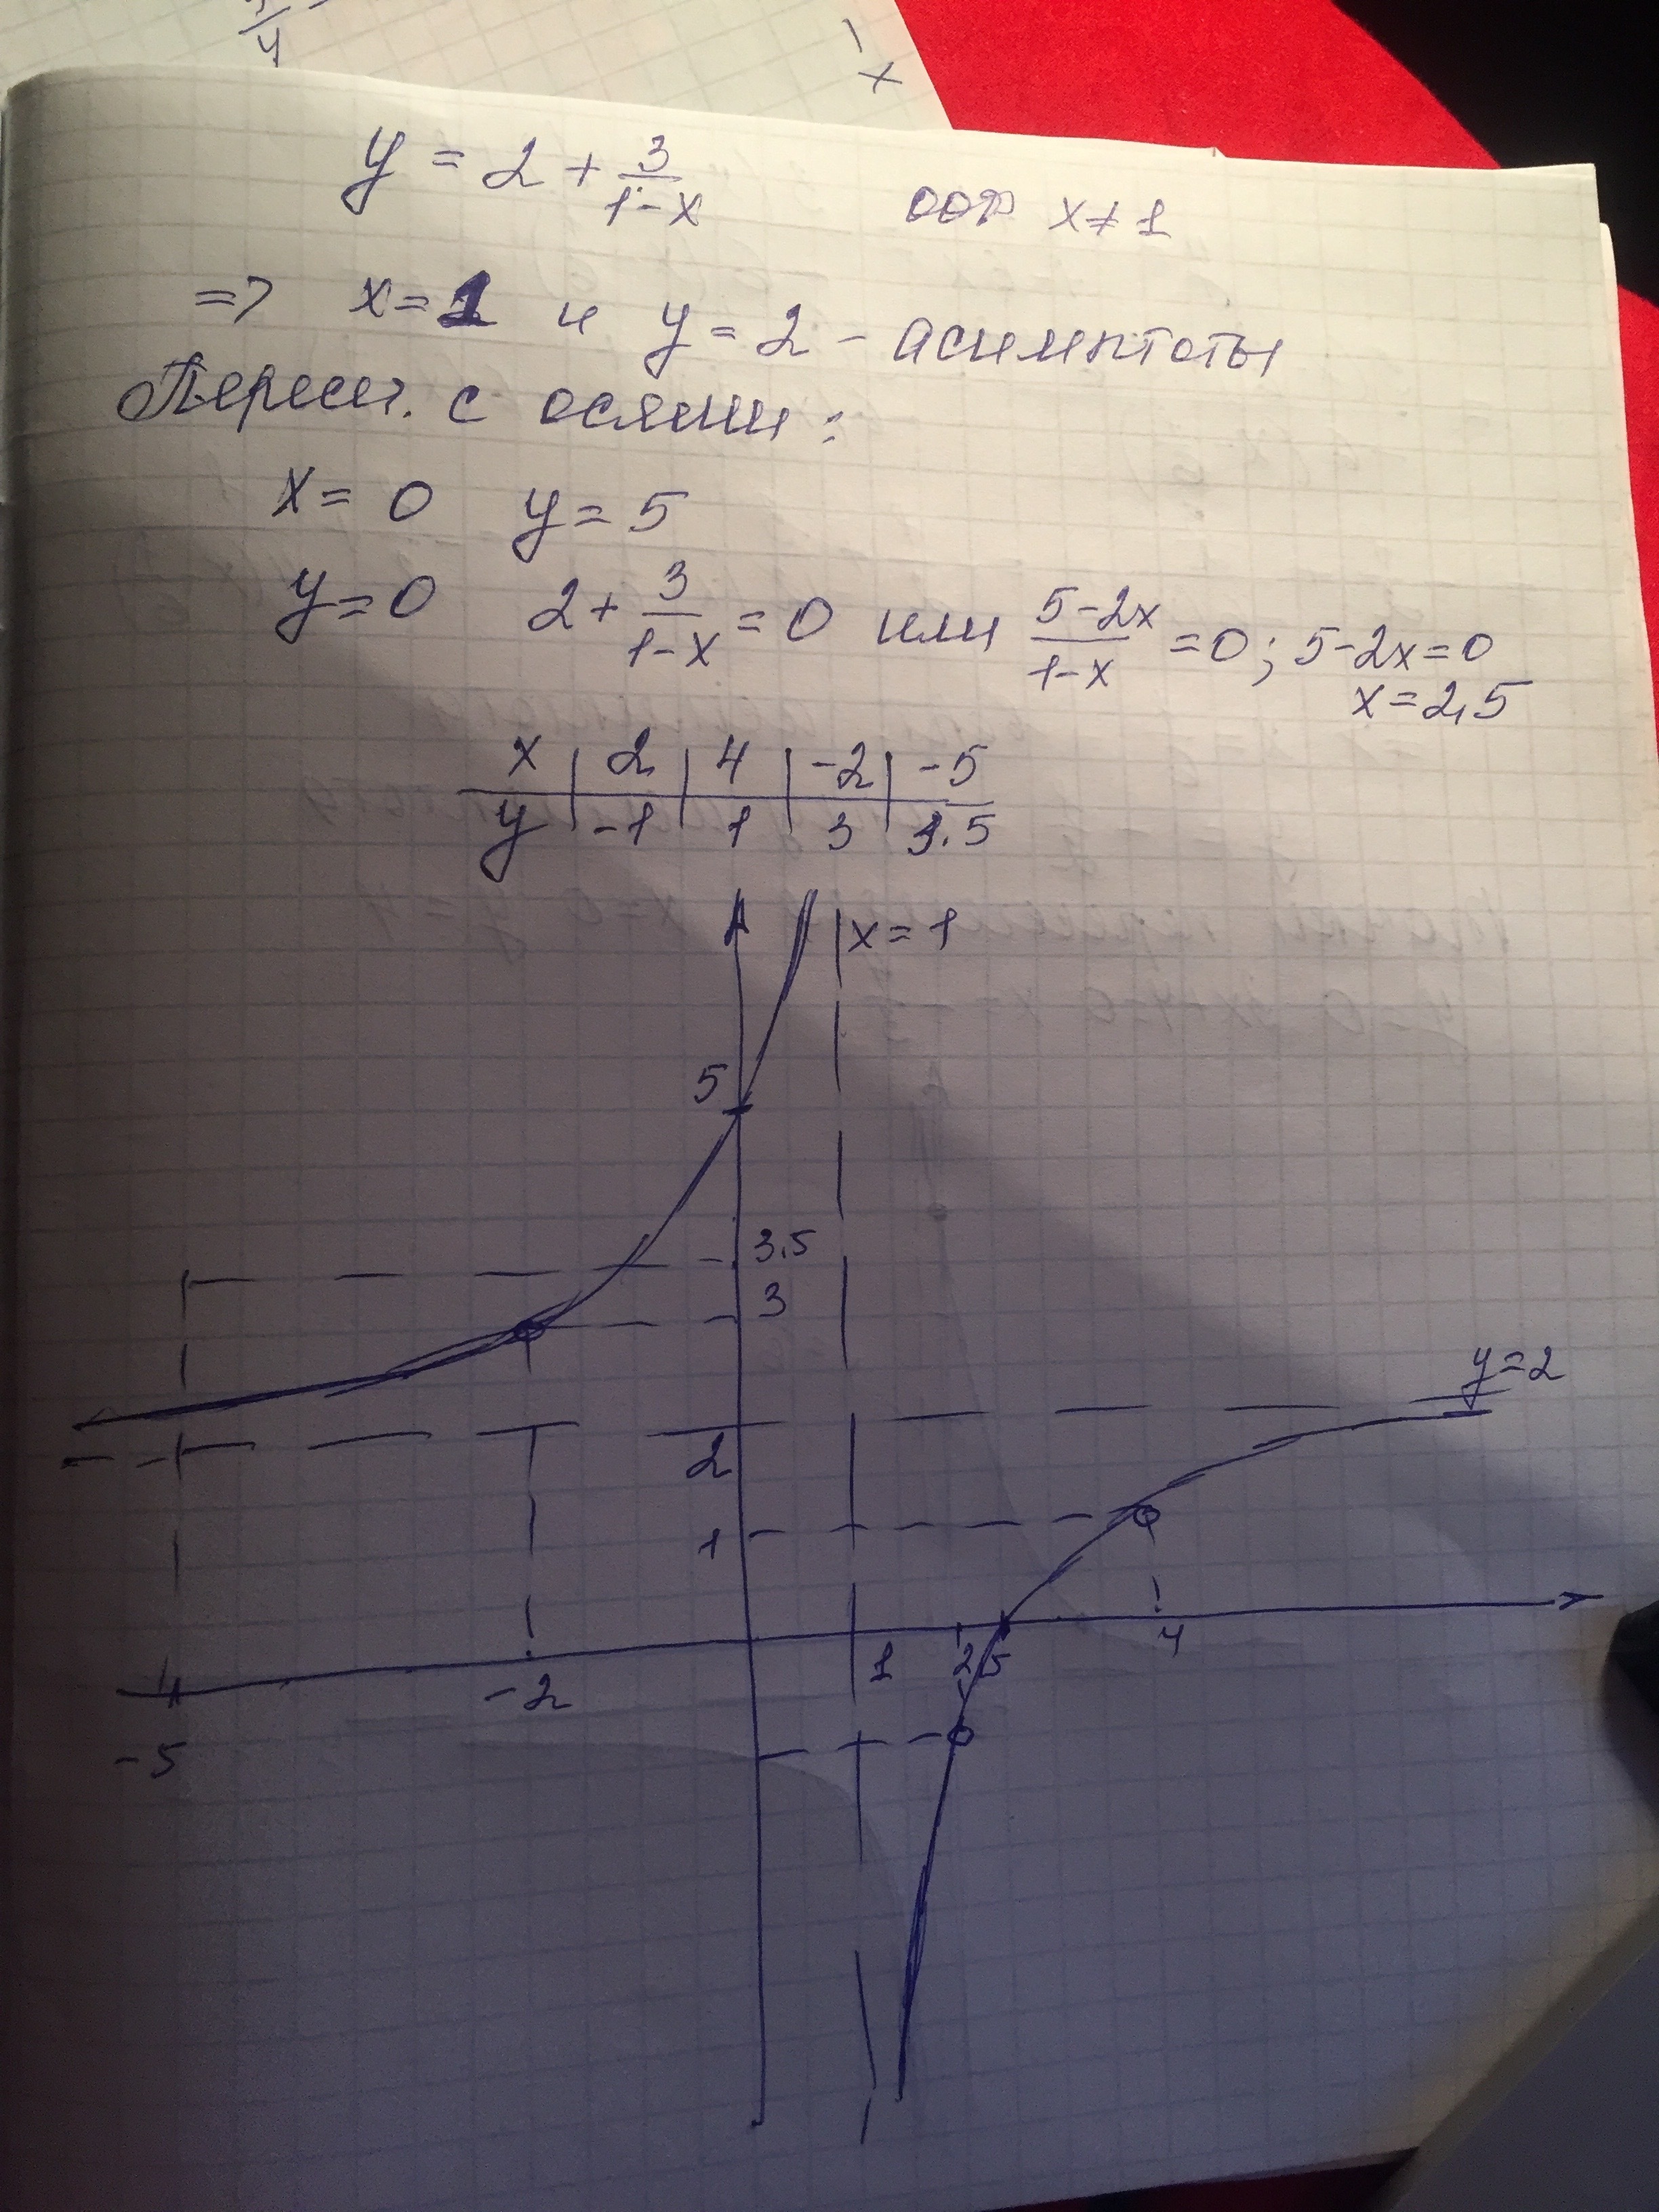 y = 2 + 3/(1-x) ООФ x≠1
=> x=1 и y=2 - асимптоты
Пересеч. с осями:
x=0 y=5
y=0 2+3/(1-x)=0 или (5-2x)/(1-x)=0; 5-2x=0
x=2,5
x | 2 | 4 | -2 | -5
y | -1 | 1 | 3 | 3.5
x=1
5
3.5
3
y=2
2
1
1 2,5 4
-2
-5